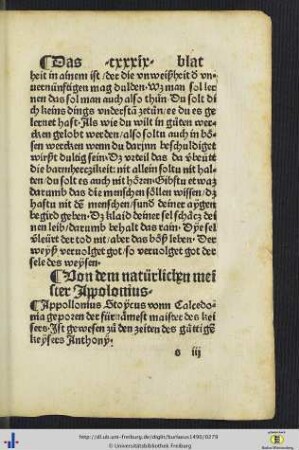 ¶Das ·cxxxix· blat
heit in ainem ist / der die vnweißheit d vn=
uernünftigen mag dulden · Wz man sol ler
nen das sol man auch also thůn · Du solt di
ch keins dings vnderstã zetůn / ee du es ge
lernet hast · Als wie du wilt in gůten wer=
cken gelobt werden / also soltu auch in bö=
sen wercken wenn du darjnn beschuldiget
wirst dultig sein · Dz vrteil das da
die barmherczikeit: nit allein soltu nit hal=
ten / du solt es auch nit hören · Gibstu etwaz
darumb das die menschen söllen wissen / dz
hastu nit dē menschen / sund deiner aygen
begird geben · Dz klaid deiner sel schãcz dei
nen leib / darumb behalt das rain · Dye sel
der tod nit / aber das böß leben · Der
weyß veruolget got / so veruolget got der
sele des weysen ·
¶Von dem natürlichen mei
ster Appolonius·
¶Appollonius Stoycus vonn Calcedo=
nia geporen der fürnämest maister des kei
sers · Ist gewesen zů den zeiten des gütigē
keysers Anthony ·
o iij
http://dl.ub.uni-freiburg.de/diglit/burlaeus1490/0279
© Universitätsbibliothek Freiburg